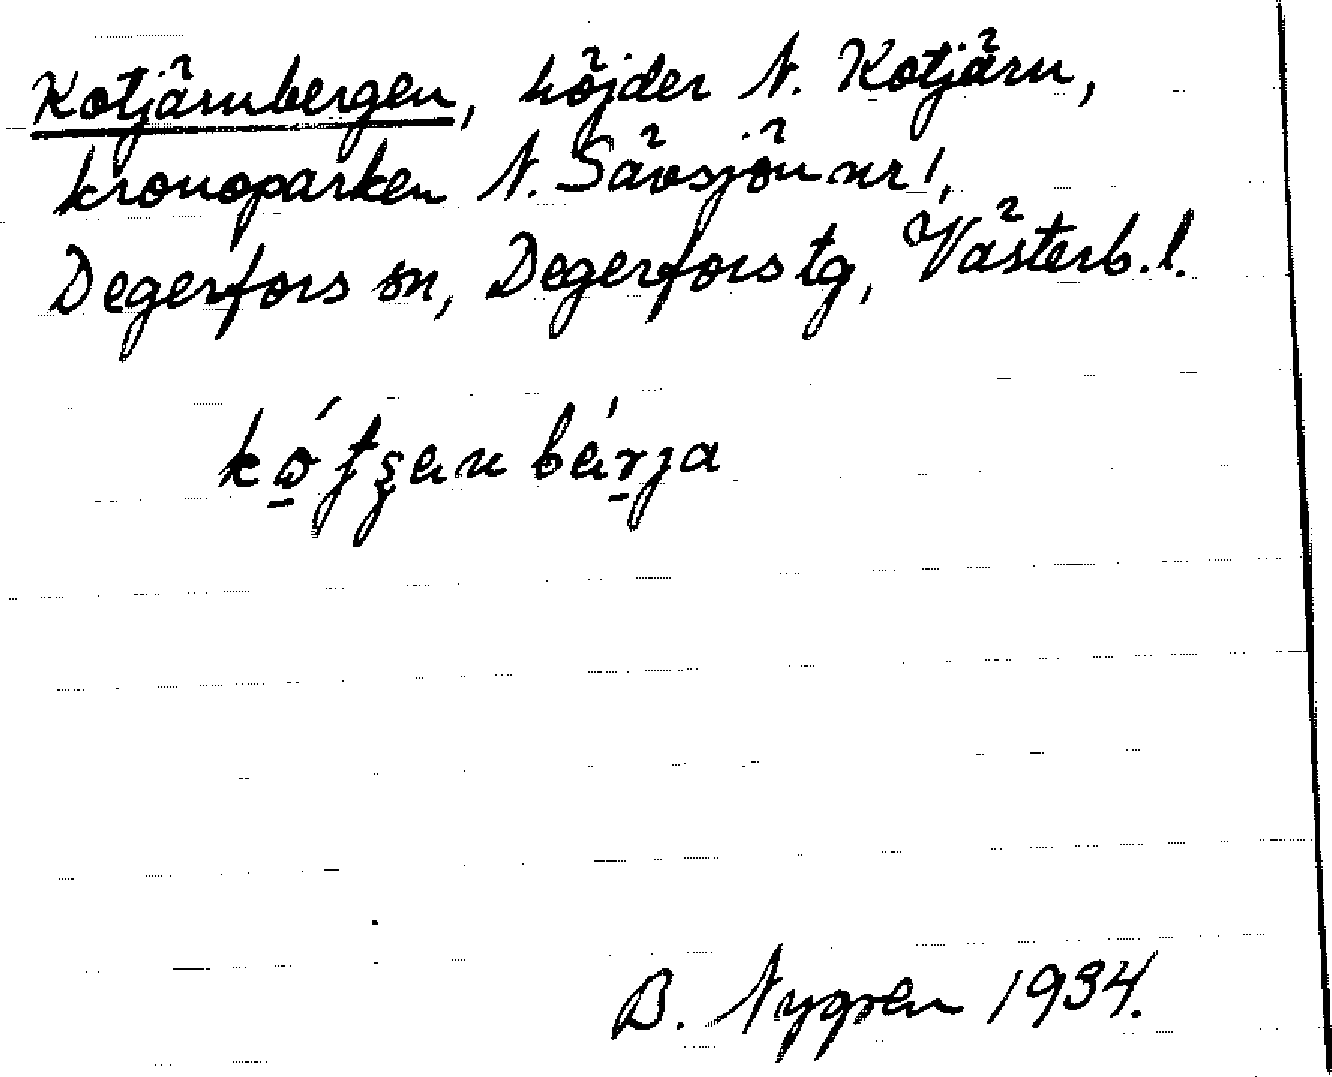 Kotjärnbergen, höjder N. Kotjärn,
kronoparken N. Sävsjön nr 1,
Degerfors sn, Degerfors tg, Västerb. l.
B. Nygren 1934.